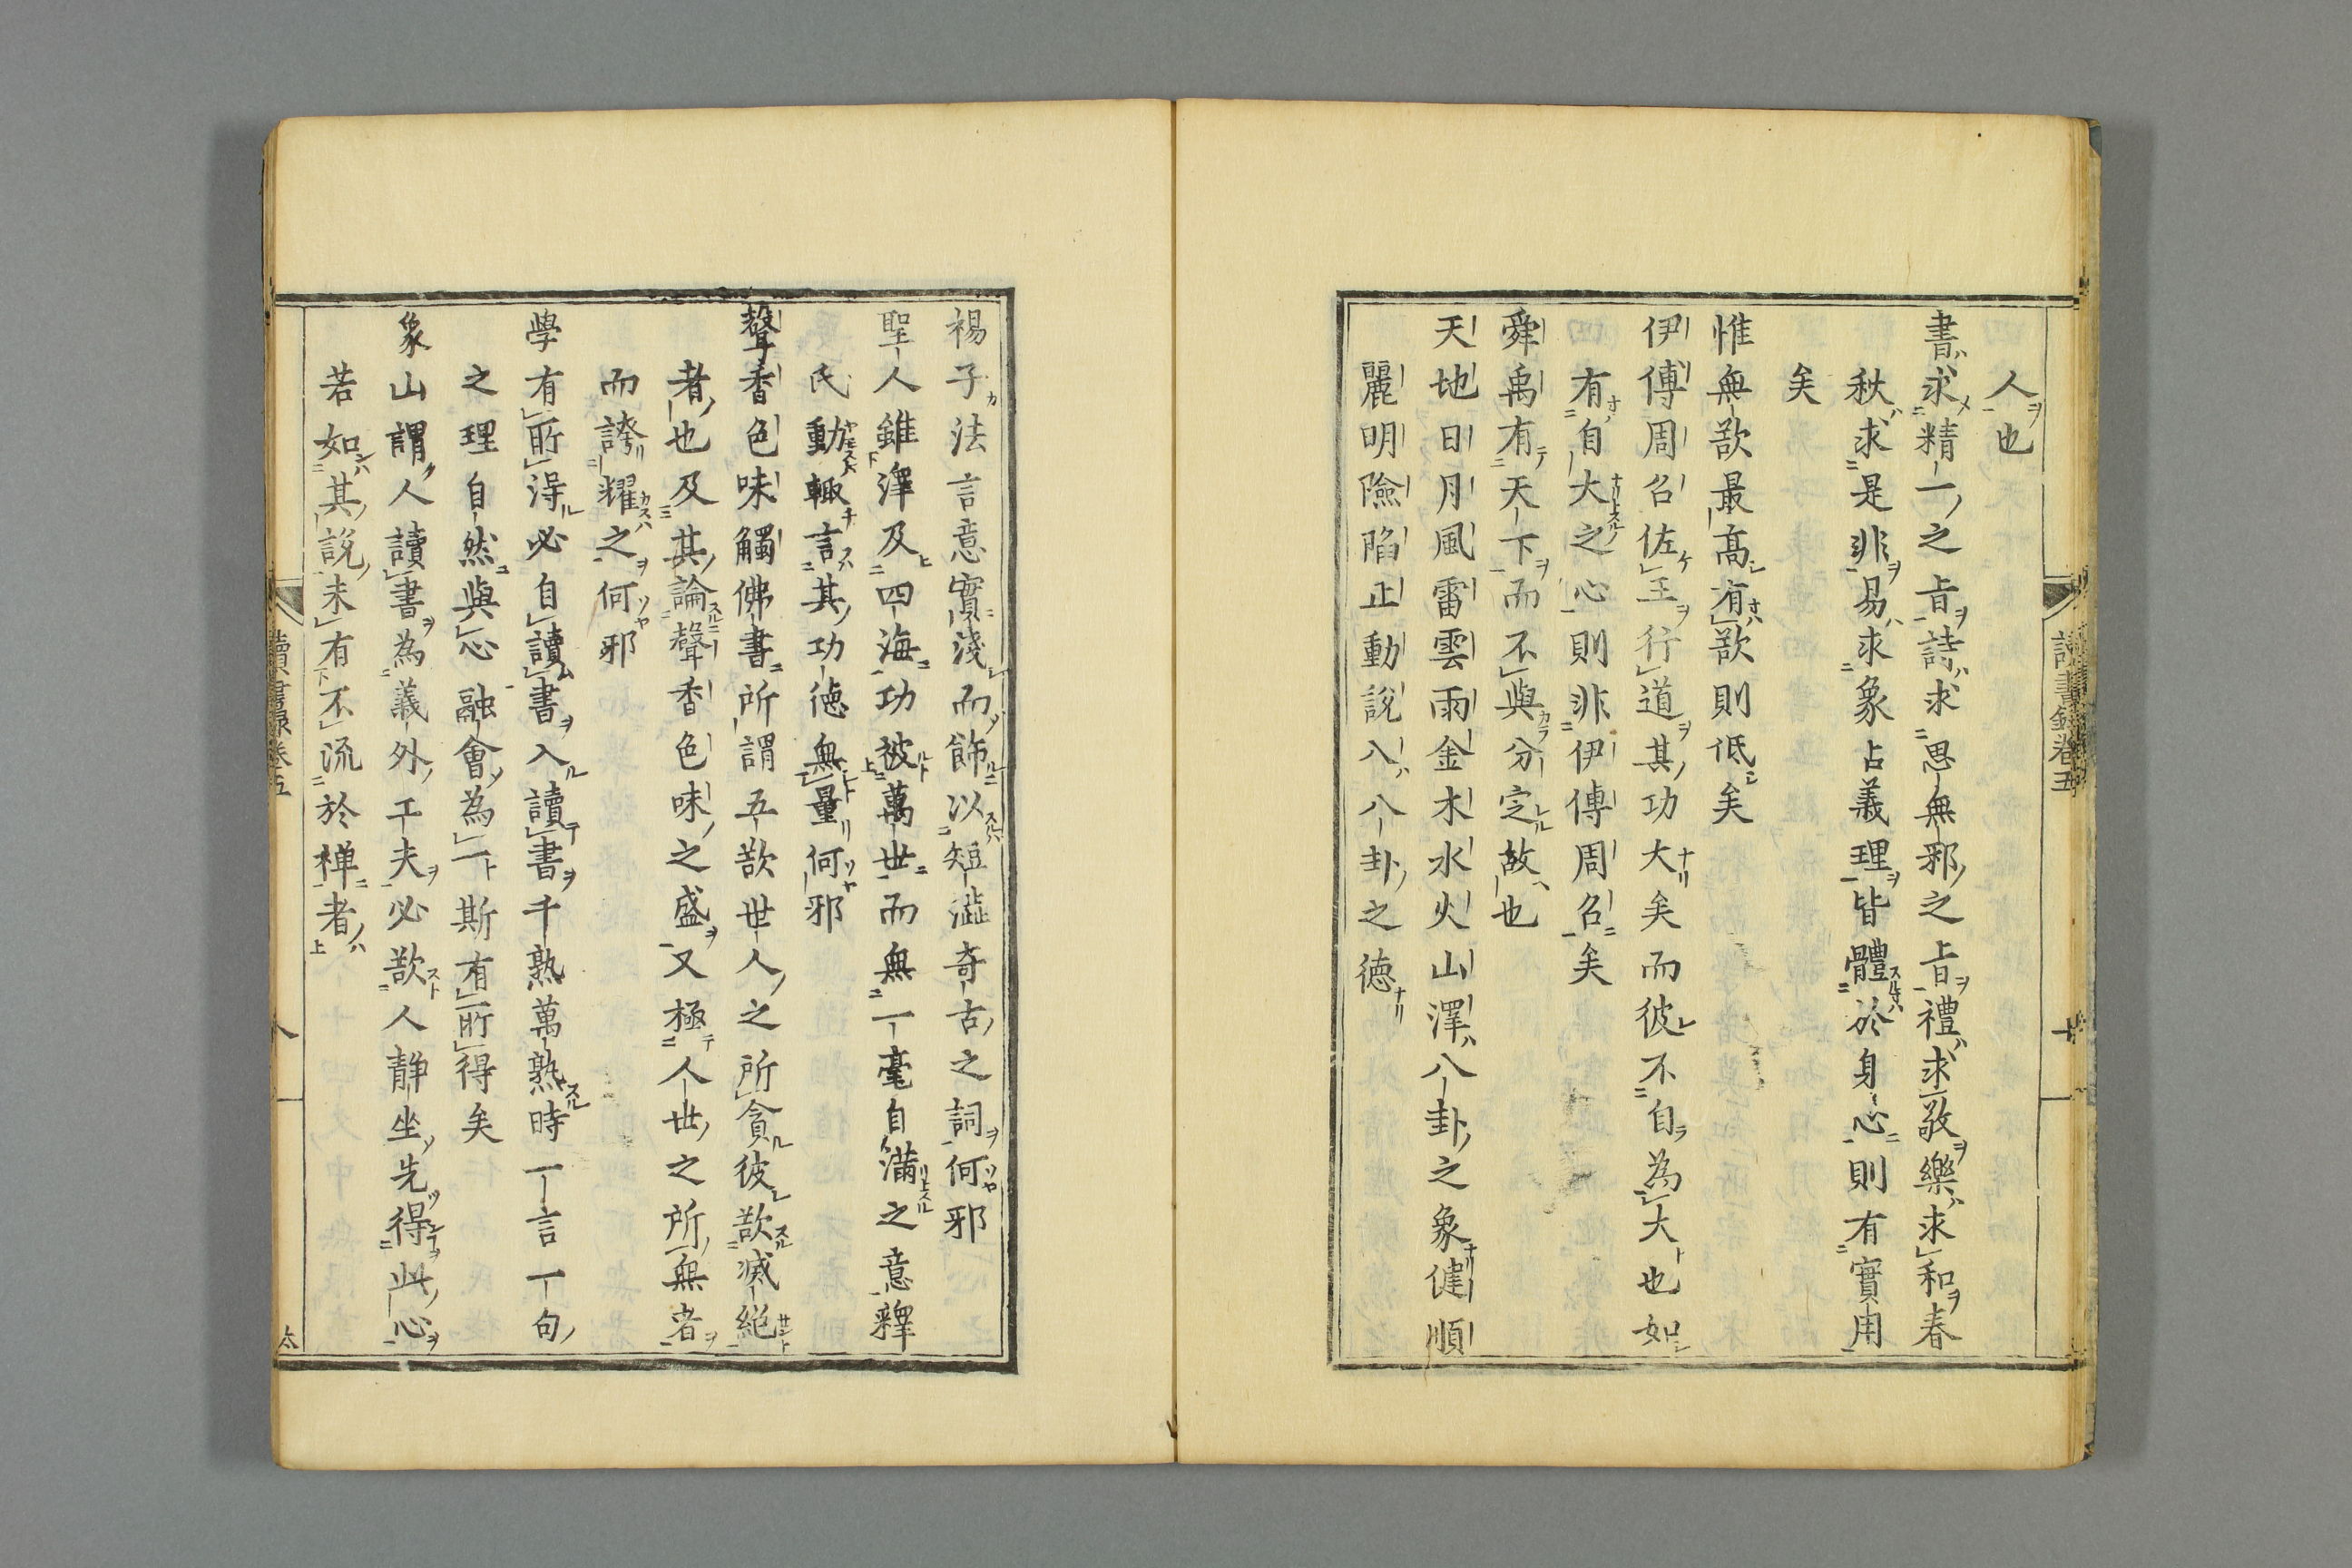 人也
書求精一之㫖詩求思無邪之㫖禮求敬樂求和春
秋求是非易求象占義理皆體於身心則有實用
矣
惟無欲最高有欲則低矣
伊傅周召佐王行道其功大矣而彼不自為大也如
有自大之心則非伊傅周召矣
舜禹有天下而不與分定故也
天地日月風雷雲雨金木水火山澤八卦之象健順
麗明險陷止動說入八卦之德
讀書錄卷五
十
楊子法言意實淺而飾以短澁奇古之詞何邪
聖人雖澤及四海功被萬世而無一毫自滿之意釋
氏動輙言其功德無量何邪
聲香色味觸佛書所謂五欲世人之所貪彼欲滅絕
者也及其論聲香色味之盛又極人世之所無者
而誇耀之何邪
學有所得必自讀書入讀書千熟萬熟時一言一句
之理自然與心融會為一斯有所得矣
象山謂人讀書為義外工夫必欲人靜坐先得此心
若如其說未有不流於禅者
讀書錄卷五